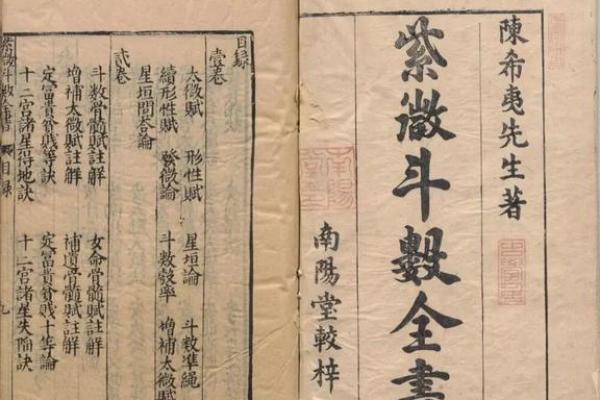 陳希夷先生著
紫微斗數全書
南陽堂較梓
目錄
壹卷
太微賦 形性賦 星垣論 斗數準繩
續形性賦 發微論 斗數彀率 增補太微賦
星垣問答論
貳卷
斗數骨髓賦註解 女命骨髓賦註解
增補太微賦註解 補遺骨髓賦註解
定富貴貧賤等訣 定富貴貧賤十等論
十二宮諸星得地訣 十二宮諸星失陷訣
紫微斗數全書 目錄 九